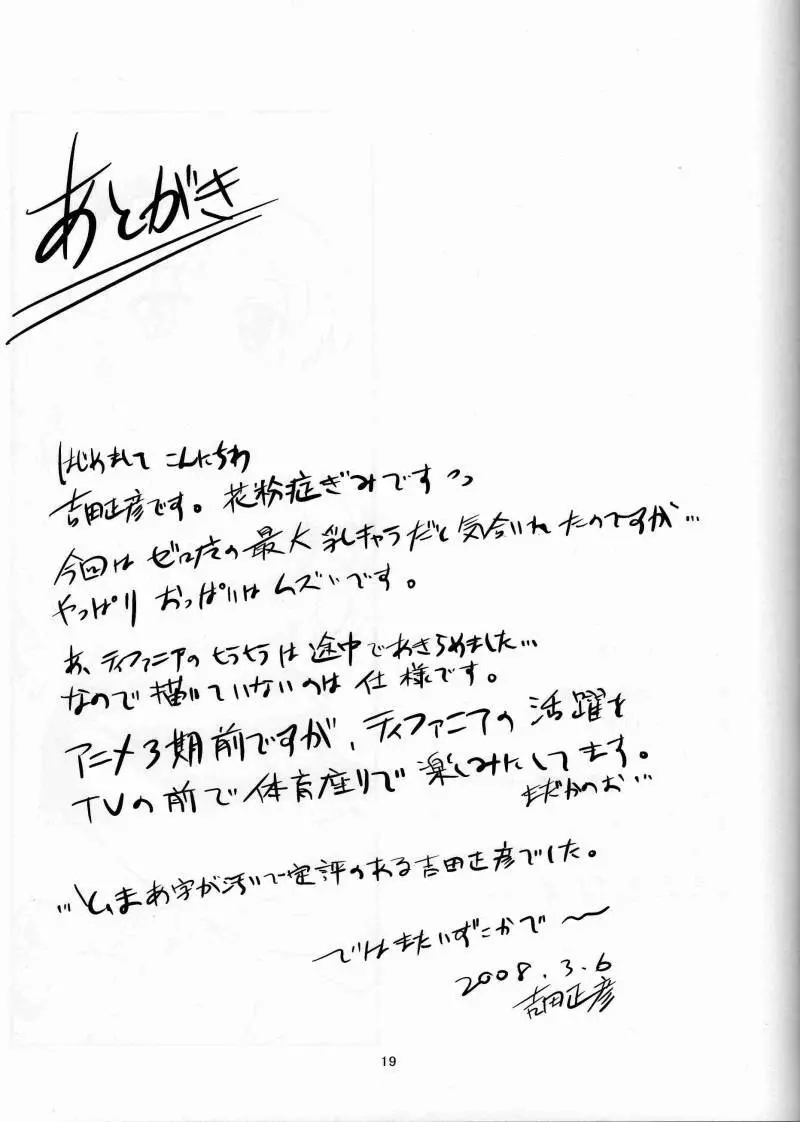 あとがき
はじめまして こんにちわ
吉田正彦です。花粉症ぎみです
今回は ゼロ魔の最大乳キャラだと気合いれたのですが…
やっぱり おっぱいは ムズいです。
あ、ティファニアの ヒラヒラは 途中であきらめました…
なので 描いていないのは 仕様です。
アニメ3期前ですが、ティファニアの 活躍を
TVの前で 体育座りで 楽しみにしてます。
まだかのお…
…と、まあ字が汚いで定評のある吉田正彦でした。
ではまたいずこかで〜
2008.3.6
吉田正彦
19